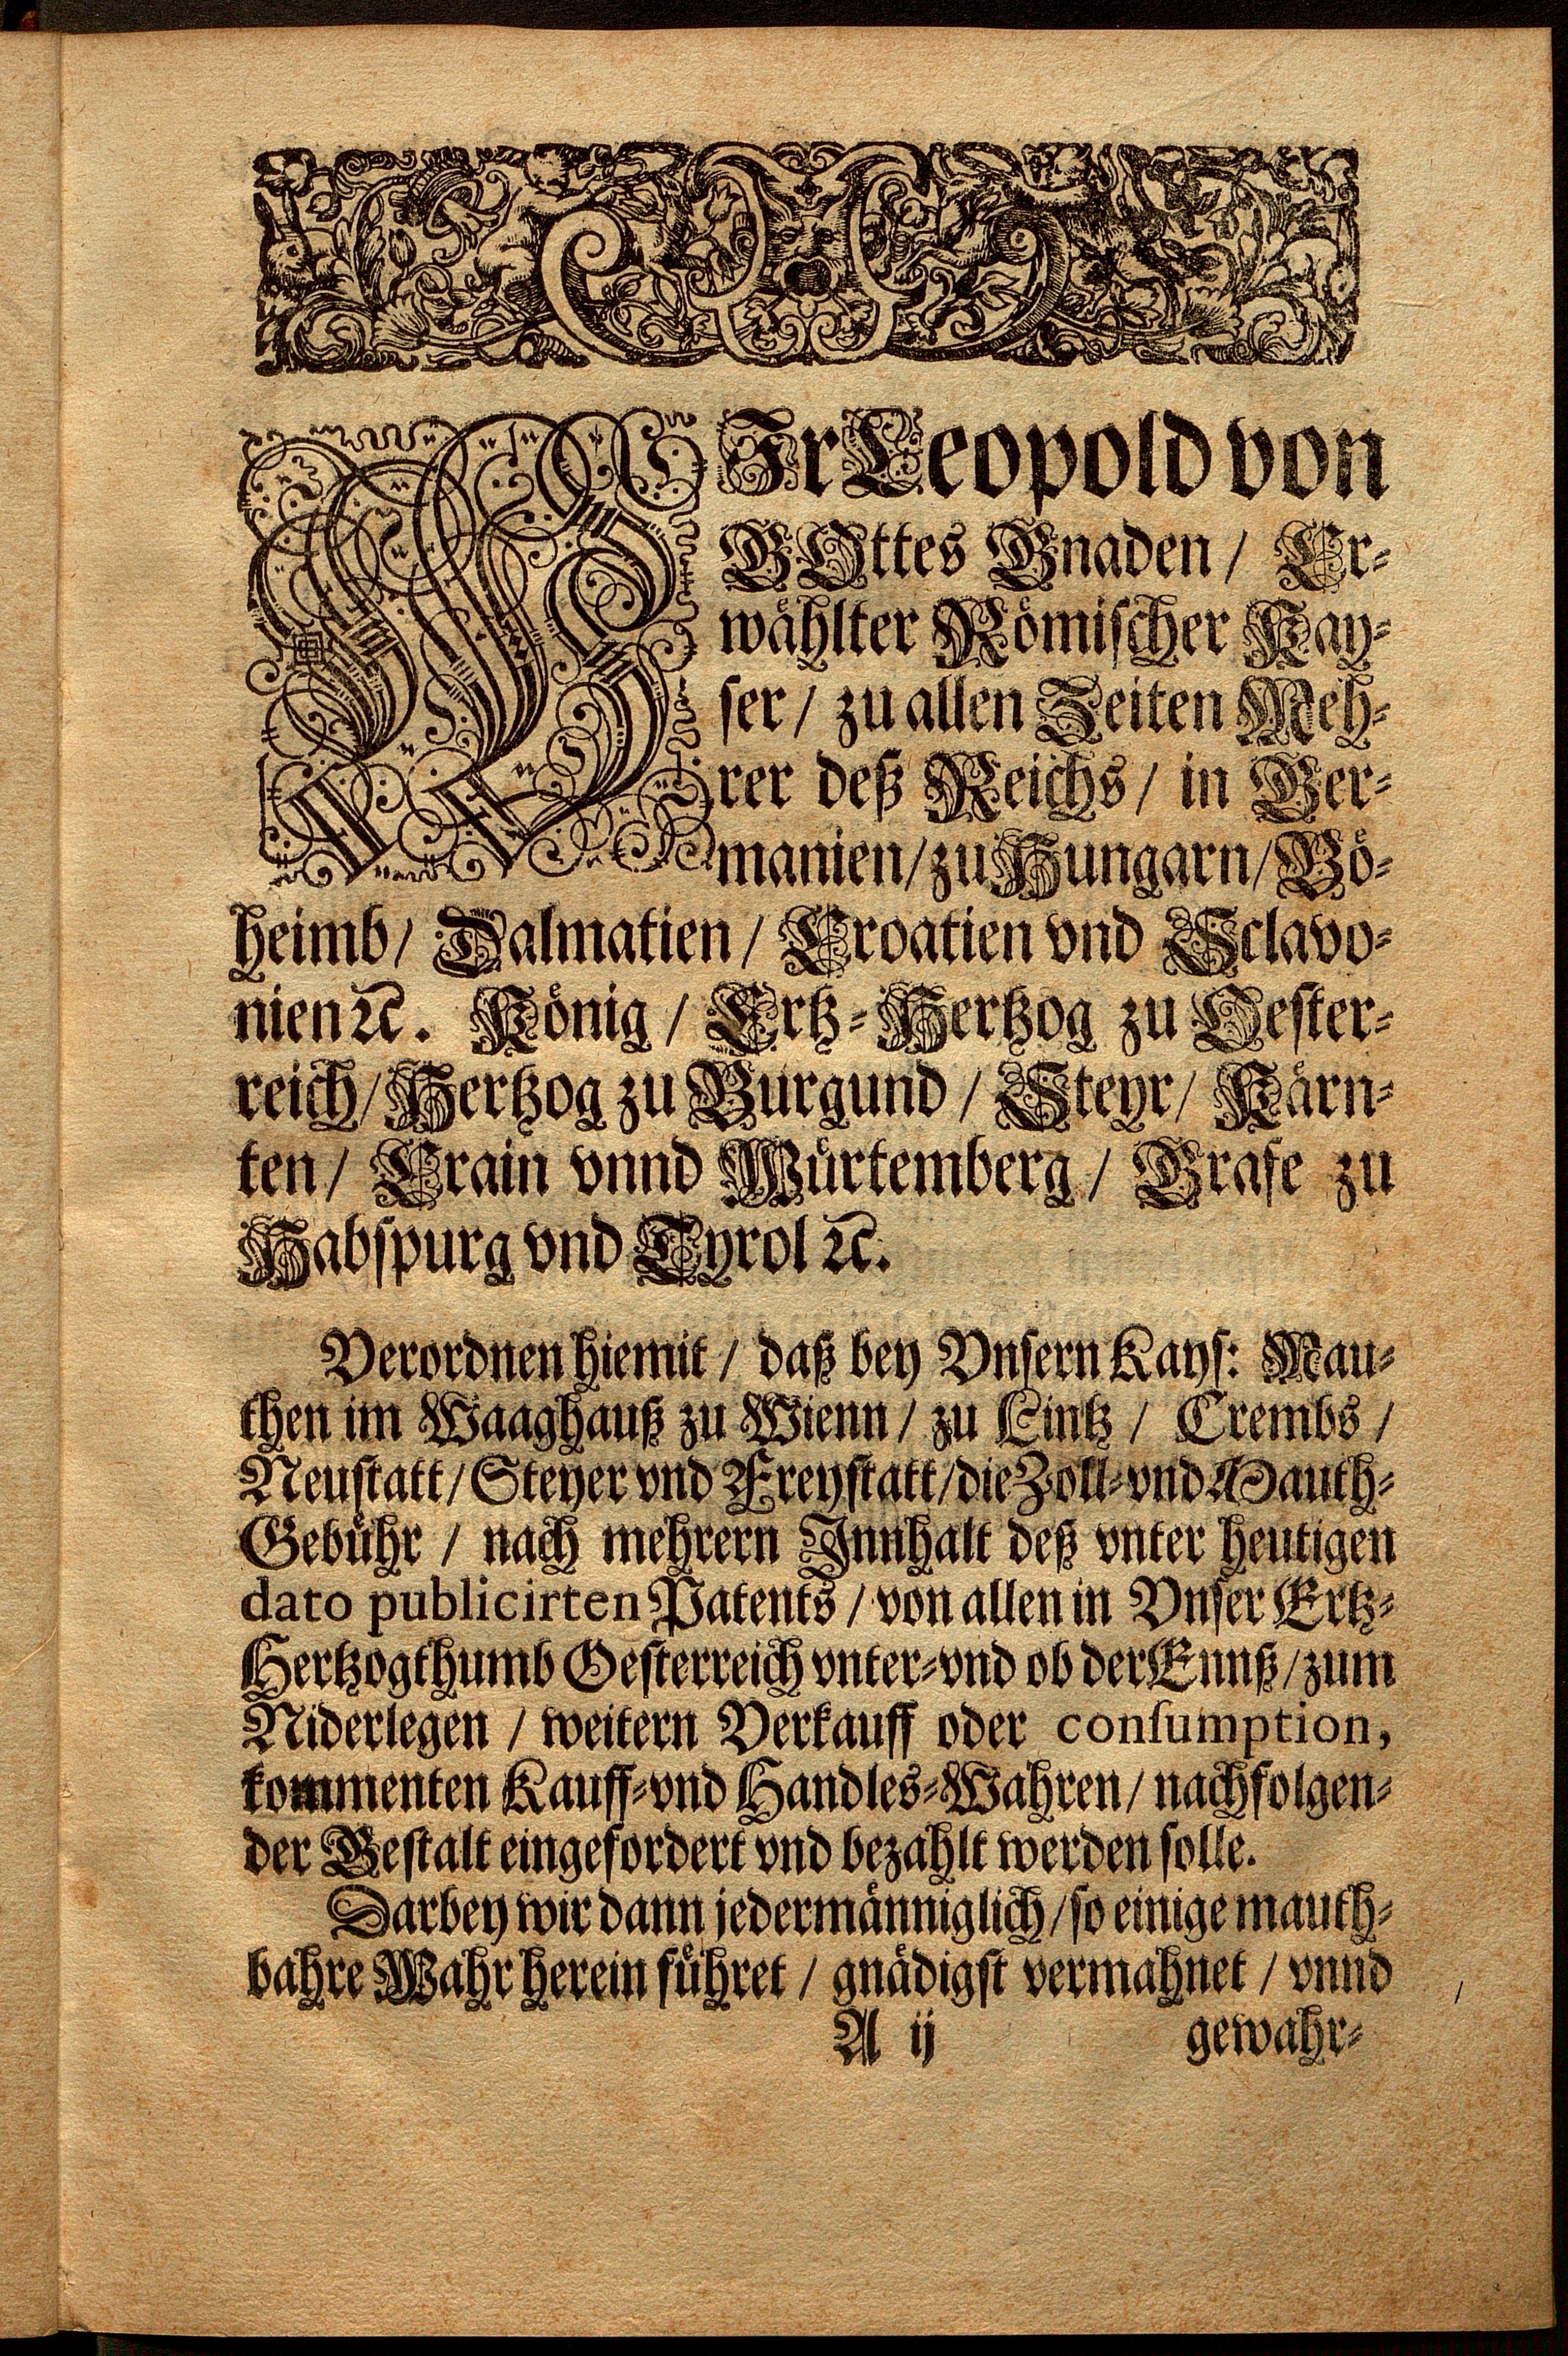 WIr Leopold von
GOttes Gnaden / Er-
wählter Römischer Kay-
ser / zu allen Zeiten Meh-
rer deß Reichs / in Ger-
manien / zu Hungarn / Bö-
heimb / Dalmatien / Croatien vnd Sclavo-
nien ꝛc. König / Ertz-Hertzog zu Oester-
reich / Hertzog zu Burgund / Steyr / Kärn-
ten / Crain vnnd Würtemberg / Grafe zu
Habspurg vnd Tyrol ꝛc.
Verordnen hiemit / daß bey Vnsern Kays: Mau-
then im Waaghauß zu Wienn / zu Lintz / Crembs /
Neustatt / Steyer vnd Freystatt / die Zoll-vnd Mauth-
Gebühr / nach mehrern Innhalt deß vnter heutigen
dato publicirten Patents / von allen in Vnser Ertz-
Hertzogthumb Oesterreich vnter-vnd ob der Ennß / zum
Niderlegen / weitern Verkauff oder conſumption,
kommenten Kauff-vnd Handles-Wahren / nachfolgen-
der Gestalt eingefordert vnd bezahlt werden solle.
Darbey wir dann jedermänniglich / so einige mauth-
bahre Wahr herein führet / gnädigst vermahnet / vnnd
A ij gewahr-